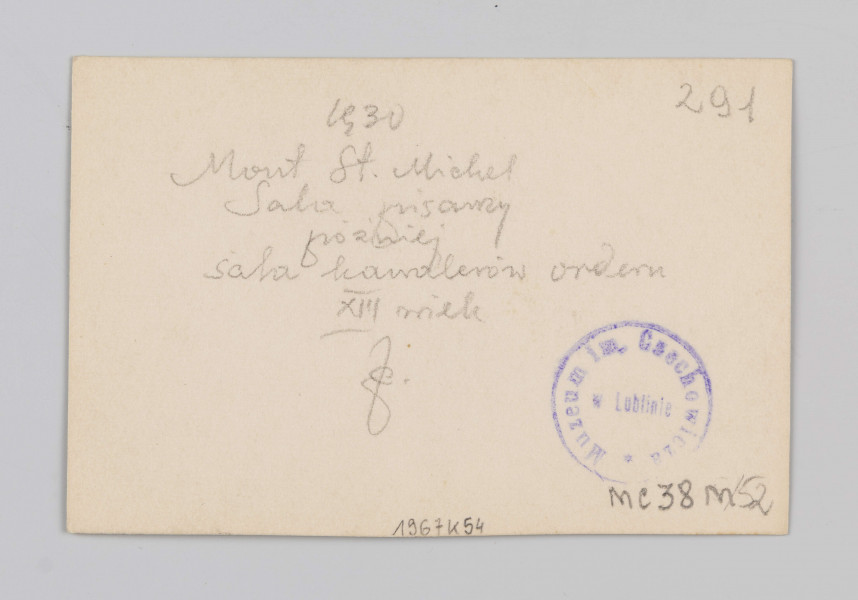 291
1930
Mont St. Michel
Sala pisarzy
później
sala kawalerów orderu
XIII wiek
Muzeum im. Czechowicza
w Lublinie
MC 38 M/52
1967K54